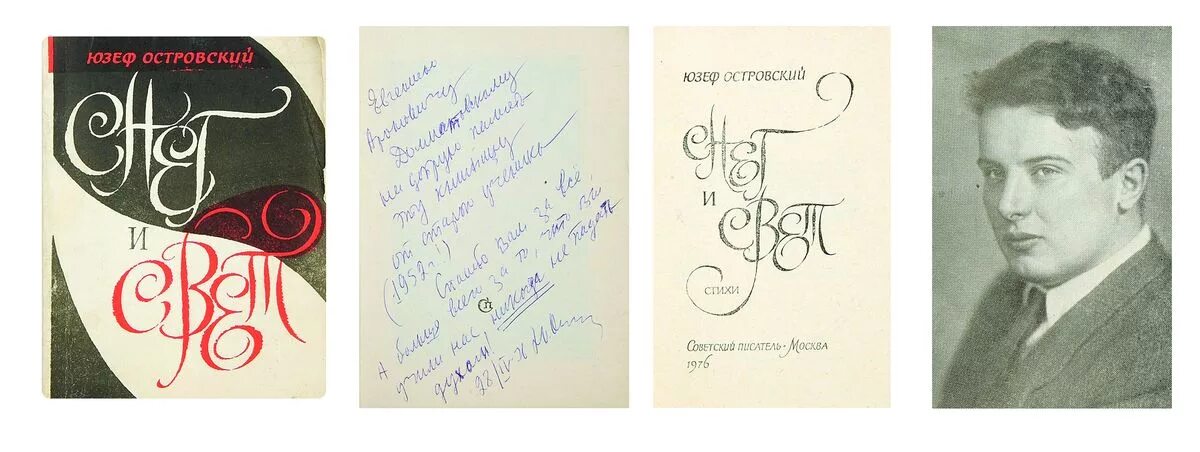 ЮЗЕФ ОСТРОВСКИЙ
СНЕГ
И
СВЕТ
Евгению
Ароновичу
Долматовскому
на добрую память
эту книжицу
от старого ученика
(1952 г.!)
Спасибо Вам за всё,
А больше всего за то, что Вы
учили нас никогда не падать
духом!
ЮЗЕФ ОСТРОВСКИЙ
СНЕГ
И
СВЕТ
СТИХИ
СОВЕТСКИЙ ПИСАТЕЛЬ · МОСКВА
1976